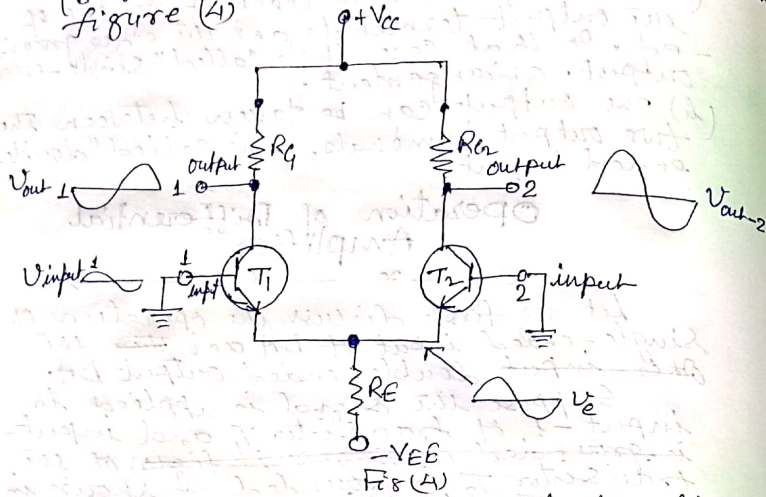 figure (4)
+Vcc
RC1
RC2
output
1
output
2
Vout 1
Vout-2
Vinput 1
1
input
T1
T2
2
input
RE
Ve
-VEE
Fig(4)